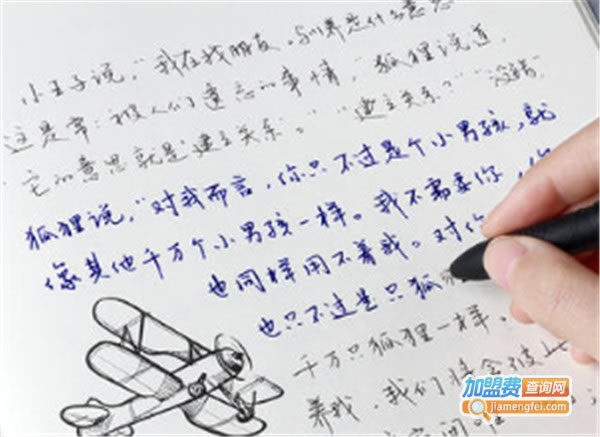 小王子说，“我在找朋友。驯养是什么意思
这是常常被人们遗忘的事情，”狐狸说道，
“它的意思就是‘建立关系’。”“‘建立关系’？”“没错，”
狐狸说，“对我而言，你只不过是个小男孩，就
像其他千万个小男孩一样。我不需要你，你
也同样用不着我。对你
也只不过是只狐
千万只狐狸一样。
养我，我们将会彼此
加盟费查询网
jiamengfei.com